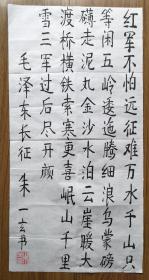 红军不怕远征难万水千山只
等闲五岭逶迤腾细浪乌蒙磅
礴走泥丸金沙水泊云崖暖大
渡桥横铁索寒更喜岷山千里
雪三军过后尽开颜
毛泽东长征 朱一玄书